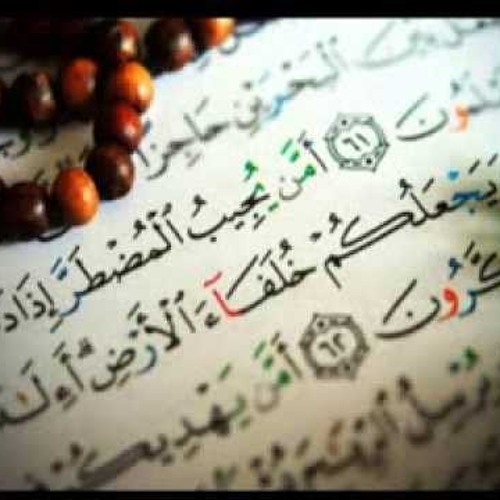 بَيْنَ ٱلْبَحْرَيْنِ حَاجِزًا
ـلَمُونَ ٦١ أَمَّن يُجِيبُ ٱلْمُضْطَرَّ إِذَا دَ
وَيَجْعَلُكُمْ خُلَفَآءَ ٱلْأَرْضِ ۗ أَءِلَـٰ
ـكَّرُونَ ٦٢ أَمَّن يَهْدِيكُمْ
يُرْسِلُ